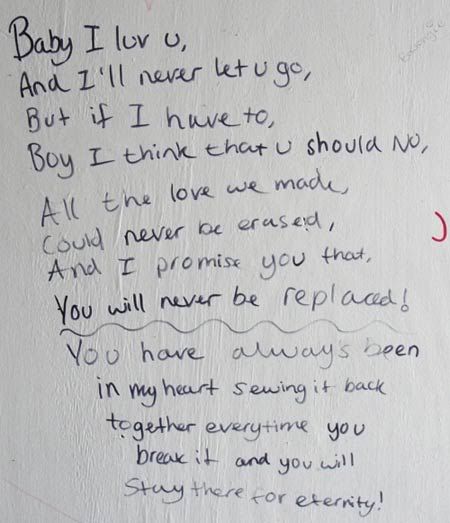 Baby I luv u,
And I'll never let u go,
But if I have to,
Boy I think that u should NO,
All the love we made,
Could never be erased,
And I promise you that,
You will never be replaced!
You have always been
in my heart sewing it back
together everytime you
break it and you will
Stay there for eternity!